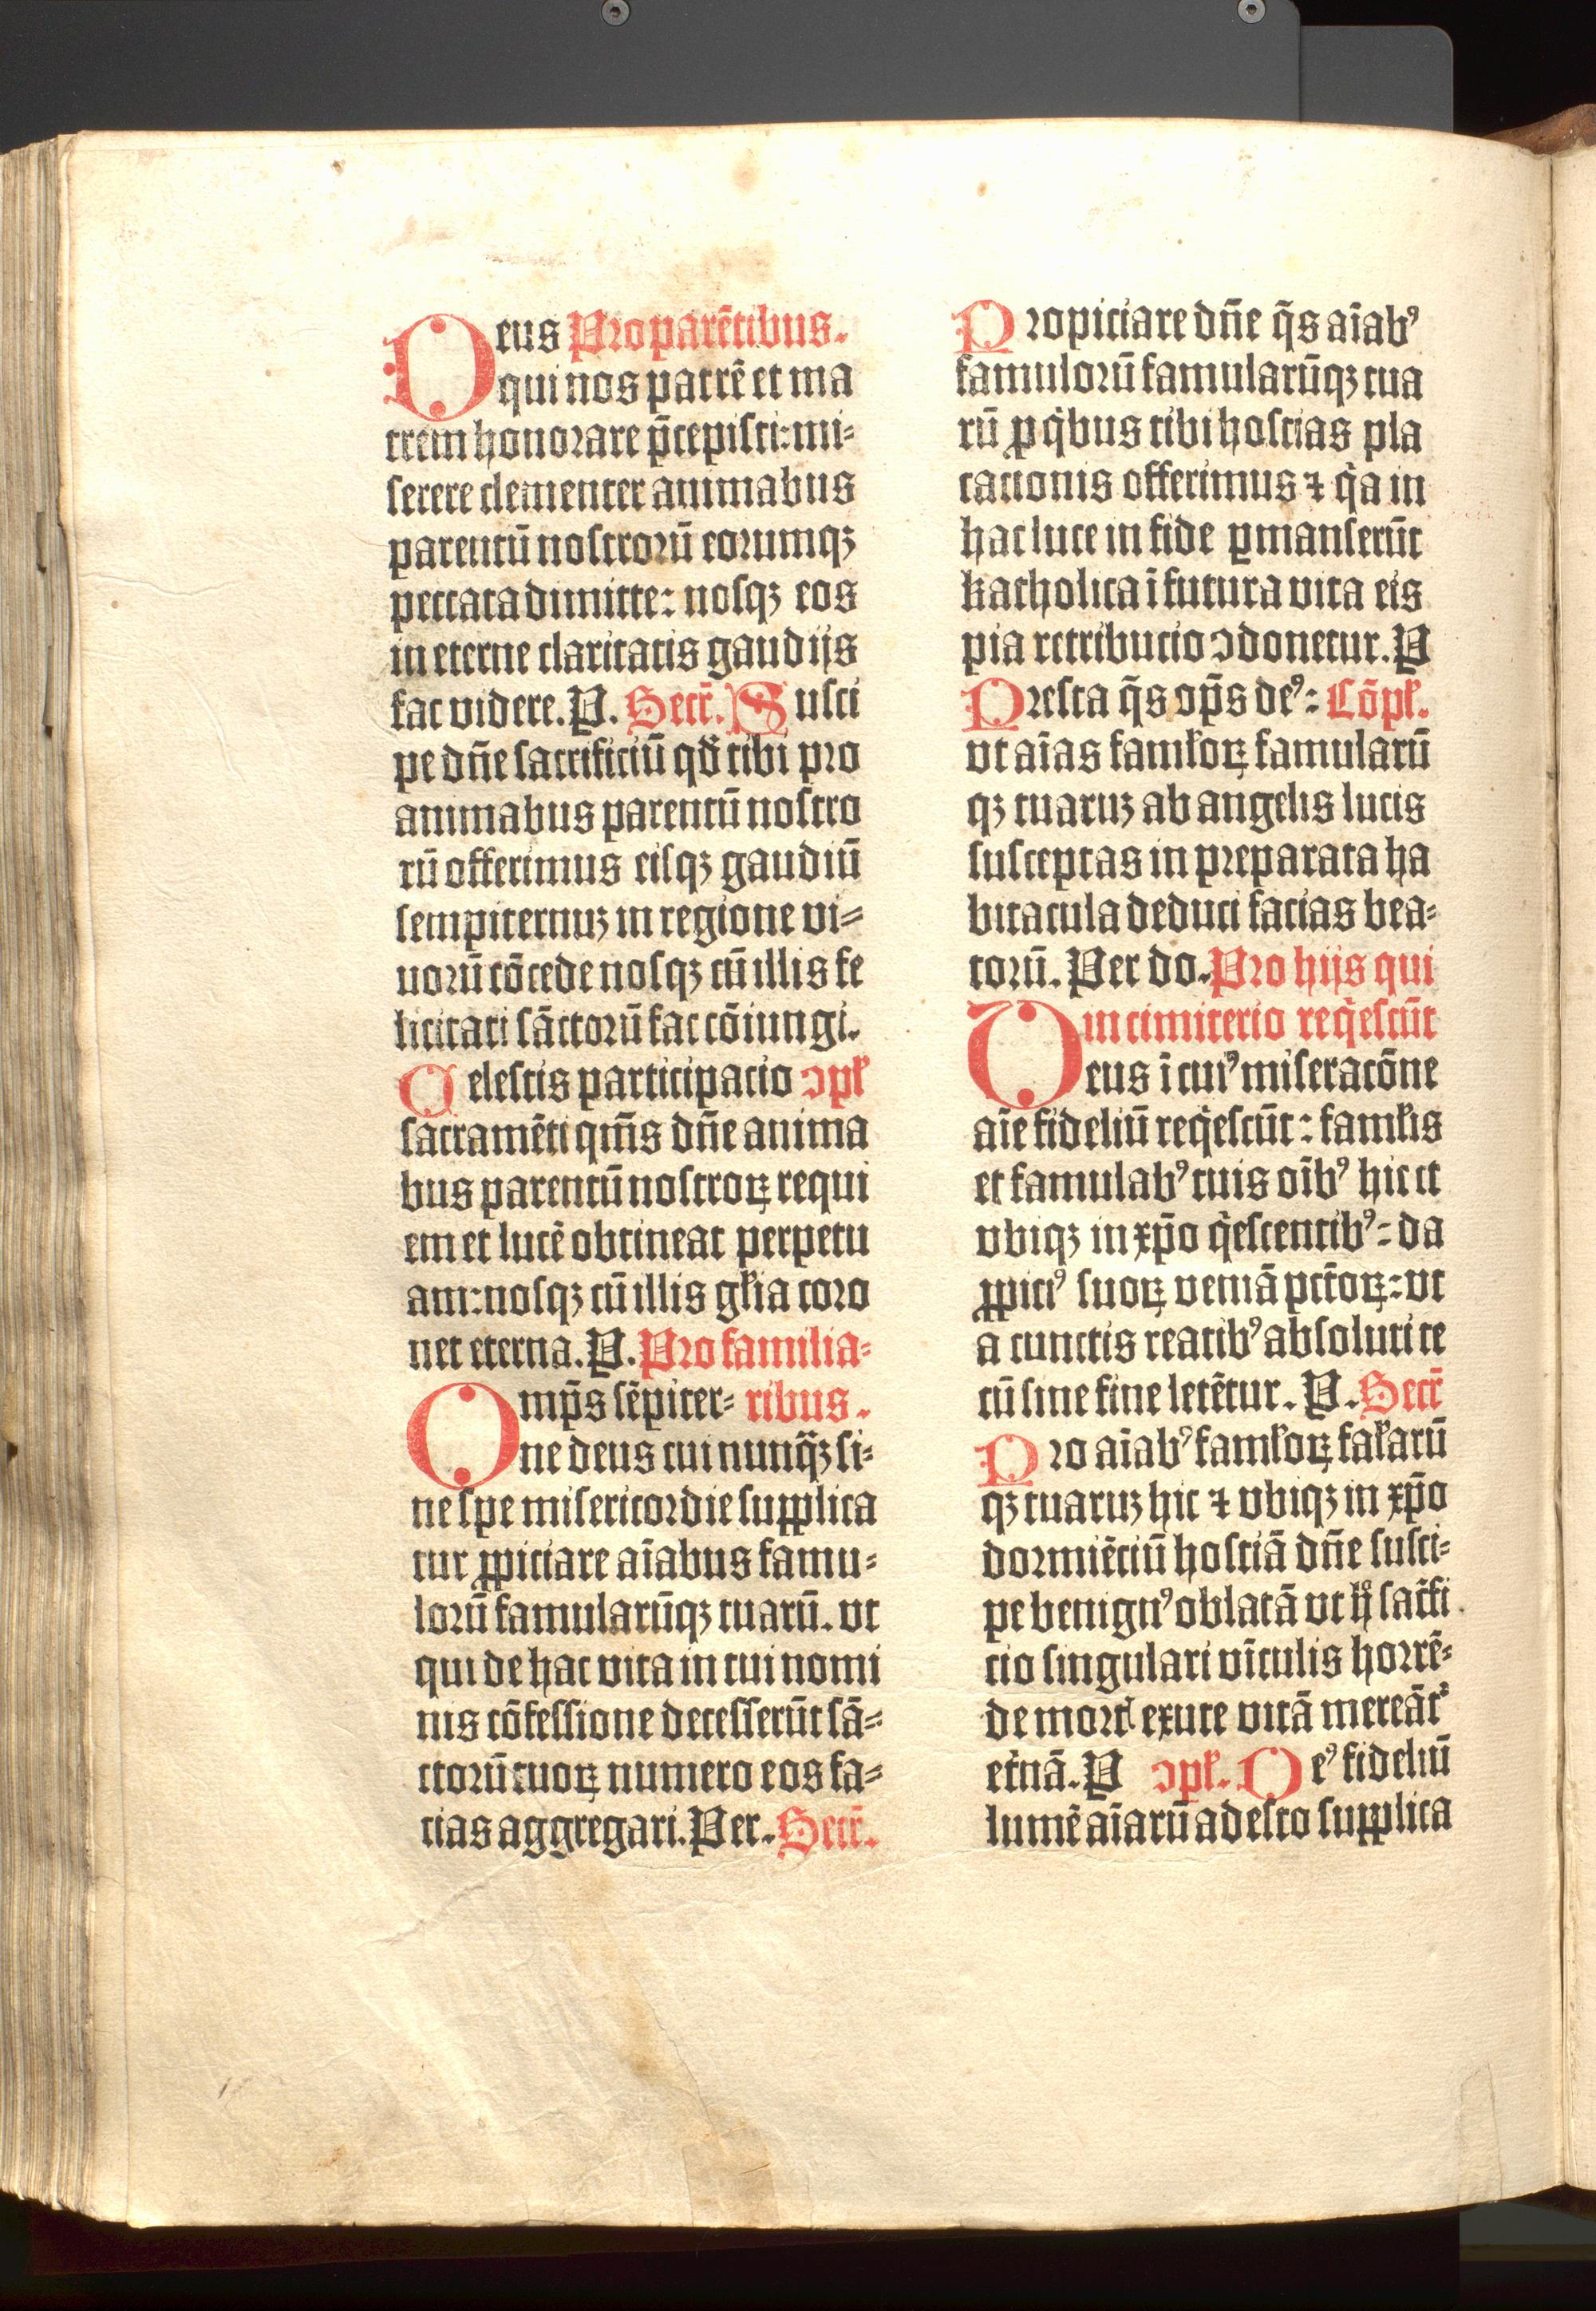 Deus Pro parētibus.
qui nos patrē et ma
trem honorare p̄cepisti: mi-
serere clementer animabus
parentū nostrorū eorumqꝫ
peccata dimitte: nosqꝫ eos
in eterne claritatis gaudijs
fac videre. P. Secr̄. Susci
pe dn̄e sacrificiū qd̄ tibi pro
animabus parentū nostro
rū offerimus eisqꝫ gaudiū
sempiternuꝫ in regione vi-
uorū cōcede nosqꝫ cū illis fe
licitati sāctorū fac cōiungi.
Celestis participacio ↄpl̄
sacramēti qm̄s dn̄e anima
bus parentū nostroꝝ requi
em et lucē obtineat perpetu
am: nosqꝫ cū illis gl̄ia coro
net eterna. P. Pro familia-
Omp̄s sēpiter- ribus.
ne deus cui nunqᷓꝫ si-
ne spe misericordie supplica
tur ꝓpiciare aīabus famu-
lorū famularūqꝫ tuarū. vt
qui de hac vita in tui nomi
nis cōfessione decesserūt sā-
ctorū tuoꝝ numero eos fa-
cias aggregari. Per. Secr̄.
Propiciare dn̄e q̄s aīabꝰ
famulorū famularūqꝫ tua
rū ꝓ qͥbus tibi hostias pla
cationis offerimus ⁊ qͥa in
hac luce in fide ꝑmanserūt
katholica ī futura vita eis
pia retributio ↄdonetur. P
Presta q̄s op̄s deꝰ: Cōpl̄.
vt aīas faml̄oꝝ famularū
qꝫ tuaruꝫ ab angelis lucis
susceptas in preparata ha
bitacula deduci facias bea-
torū. Per do. Pro hijs qui
in cimiterio reqͥescūt
Deus ī cuiꝰ miseracōne
aīe fideliū reqͥescūt: faml̄is
et famulabꝰ tuis oībꝰ hic et
vbiqꝫ in xp̄o qͥescentibꝰ: da
ꝓpiciꝰ suoꝝ veniā pctōꝝ: vt
a cunctis reatibꝰ absoluti te
cū sine fine letētur. P. Secr̄
Pro aīabꝰ faml̄oꝝ fal̄arū
qꝫ tuaruꝫ hic ⁊ vbiqꝫ in xp̄o
dormiēciū hostiā dn̄e susci-
pe benignꝰ oblatā vt hͦ sacͥfi
cio singulari vīculis horrē-
de mortꝭ exute vitā mereāt᷑
et̄nā. P ↄpl̄. Deꝰ fideliū
lumē aīarū adesto supplica